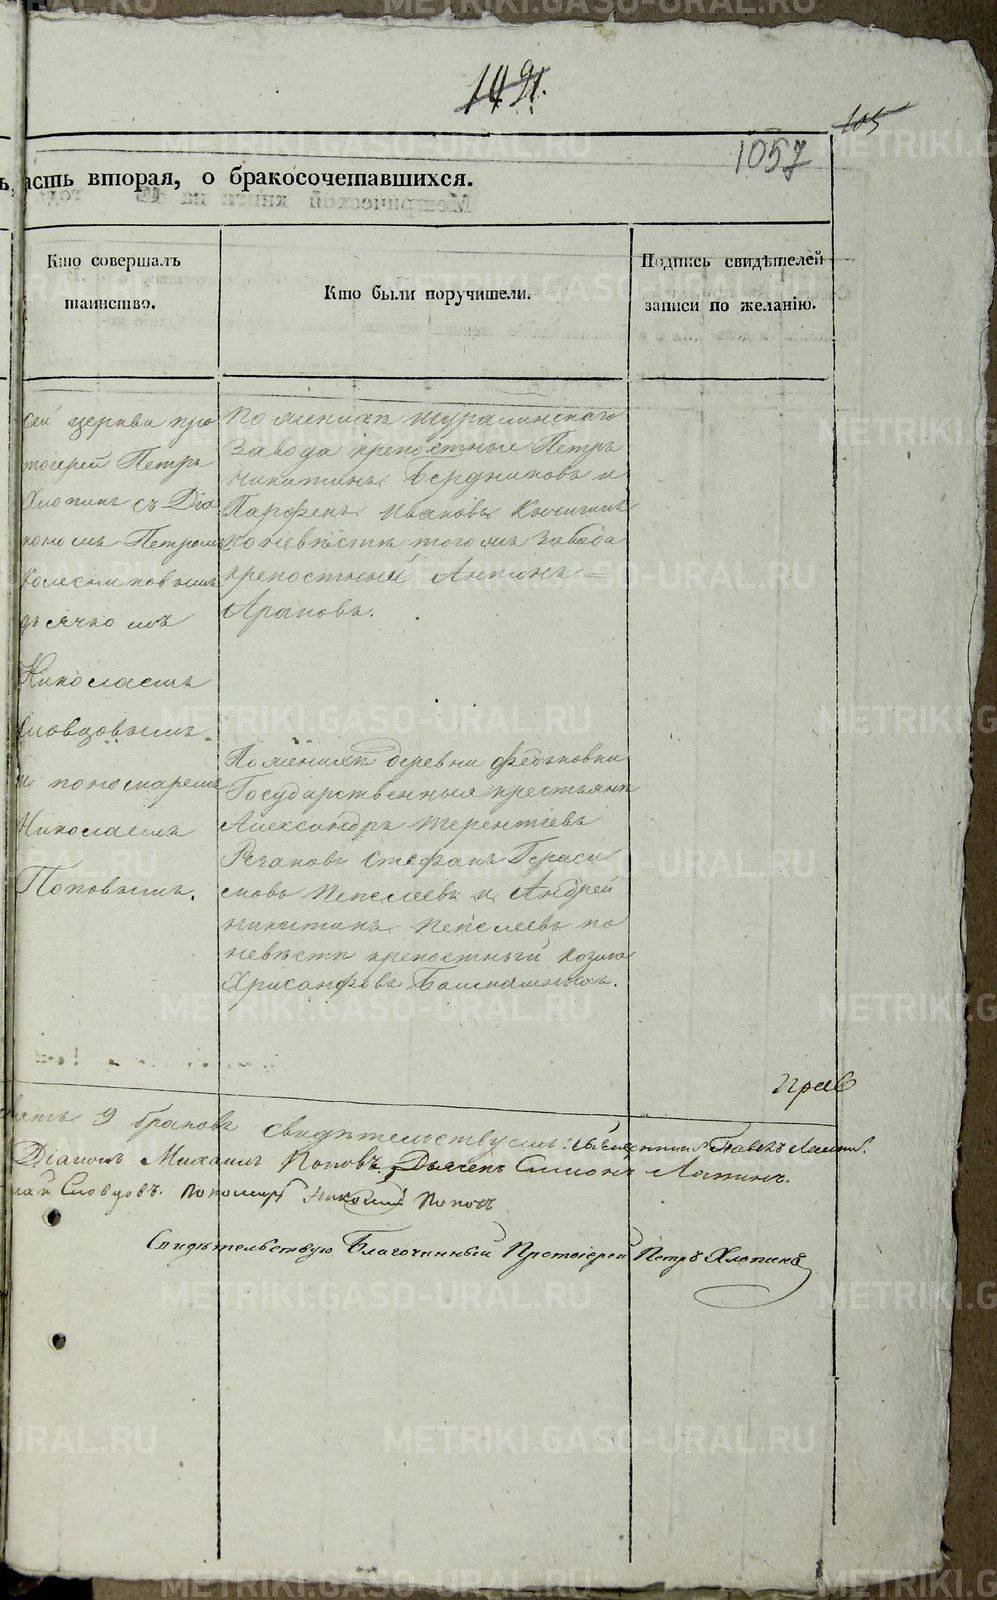 1491.
105
1057
асть вторая, о бракосочетавшихся.
Кто совершалъ
таинство.
Кто были поручители.
Подпись свидѣтелей
записи по желанію.
сей церкви про
тоіерей Петръ
Хлопинъ съ Діа
кономъ Петромъ
Колесниковымъ
дьячкомъ
Николаемъ
Словцовымъ
и пономаремъ
Николаемъ
Поповымъ.
По женихѣ
Завода крепостные Петръ
Никитинъ Бердниковъ и
Парфенъ Ивановъ
по невѣстѣ того жъ Завода
крепостный Антонъ
Араповъ.
По женихѣ деревни
Государственныя крестьяне
Александръ Терентіевъ
Стефанъ Гераси
мовъ Пепелевъ и Андрей
Никитинъ Пепелевъ по
невѣстѣ крепостный Козма
Хрисанфовъ
9 браковъ свидѣтельствуемъ: священникъ Павелъ
Діаконъ Михаилъ Поповъ Дьячекъ Симіонъ Лапинъ.
лай Словцовъ. Пономарь Николай Поповъ
Свидѣтельствую Благочинный Протоіерей Петръ Хлопинъ
METRIKI.GASO-URAL.RU